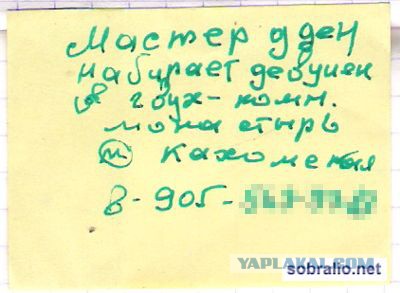 Мастер дзен
набирает девушек
в 2вух-комн.
монастырь
м Каховская
8-905-
YAPLAKAL.COM
sobralio.net